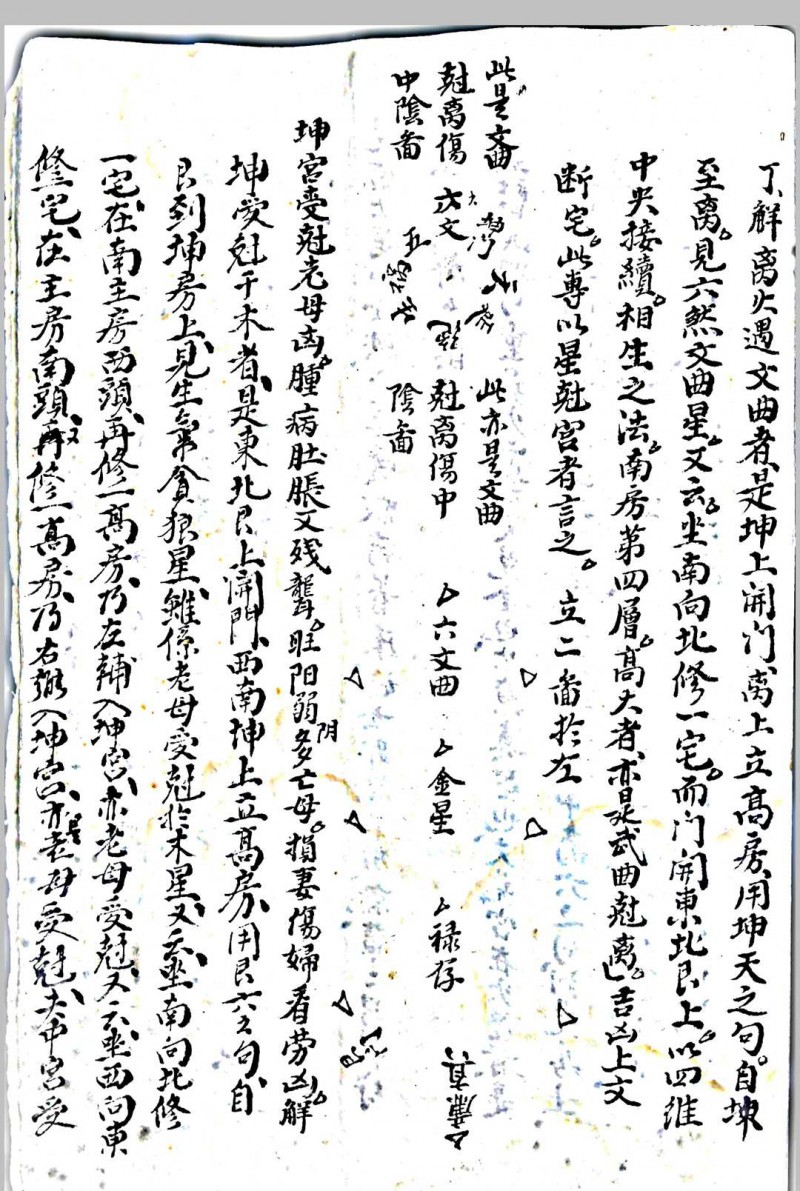 了、解离火遇文曲者、是坤上開门、离上立高房、用坤天之句。自坤
至离、见六煞文曲星。又云、坐南向北修一宅。而门開東北艮上。以四维
中央接續。相生之法。南房第四層。高大者、亦是武曲尅离。吉凶上文
断宅。此專以星尅宮者言之。 立二啚於左
此是文曲
尅离傷
中陰啚
六文
此亦是文曲
尅离傷中
陰啚
六文曲
金星
禄存
坤宮受尅老母凶。腫病肚脹又残聾。旺阳弱阴多亡母。損妻傷婦看劳凶。解
坤受尅于木者、是東北艮上開門、西南坤上立高房、用艮六之句、自
艮到坤房上、见生氣貪狼星、雖係老母受尅於木星、又云坐南向北修
一宅、在南主房西頭、再修一高房、乃左輔入坤宮、亦老母受尅、又云坐西向東
修一宅、在主房南頭、又再修一高房、乃右弼入坤宮、亦是老母受尅、夫中宮受